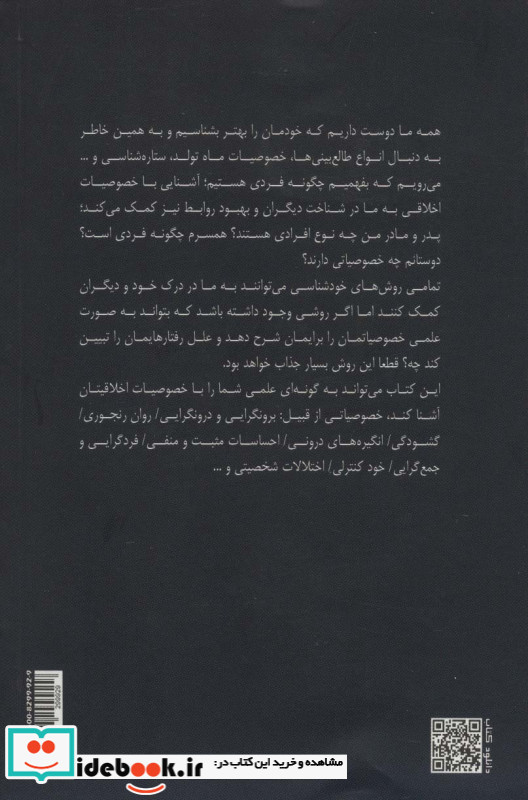 همه ما دوست داریم که خودمان را بهتر بشناسیم و به همین خاطر
به دنبال انواع طالع‌بینی‌ها، خصوصیات ماه تولد، ستاره‌شناسی و ...
می‌رویم که بفهمیم چگونه فردی هستیم؛ آشنایی با خصوصیات
اخلاقی به ما در شناخت دیگران و بهبود روابط نیز کمک می‌کند؛
پدر و مادر من چه نوع افرادی هستند؟ همسرم چگونه فردی است؟
دوستانم چه خصوصیاتی دارند؟
تمامی روش‌های خودشناسی می‌توانند به ما در درک خود و دیگران
کمک کنند اما اگر روشی وجود داشته باشد که بتواند به صورت
علمی خصوصیاتمان را برایمان شرح دهد و علل رفتارهایمان را تبیین
کند چه؟ قطعا این روش بسیار جذاب خواهد بود.
این کتاب می‌تواند به گونه‌ای علمی شما را با خصوصیات اخلاقیتان
آشنا کند، خصوصیاتی از قبیل: برونگرایی و درونگرایی/ روان رنجوری/
گشودگی/ انگیره‌های درونی/ احساسات مثبت و منفی/ فردگرایی و
جمع‌گرایی/ خود کنترلی/ اختلالات شخصیتی و ...
دانلود کتاب
مشاهده و خرید این کتاب در:
idebook.ir